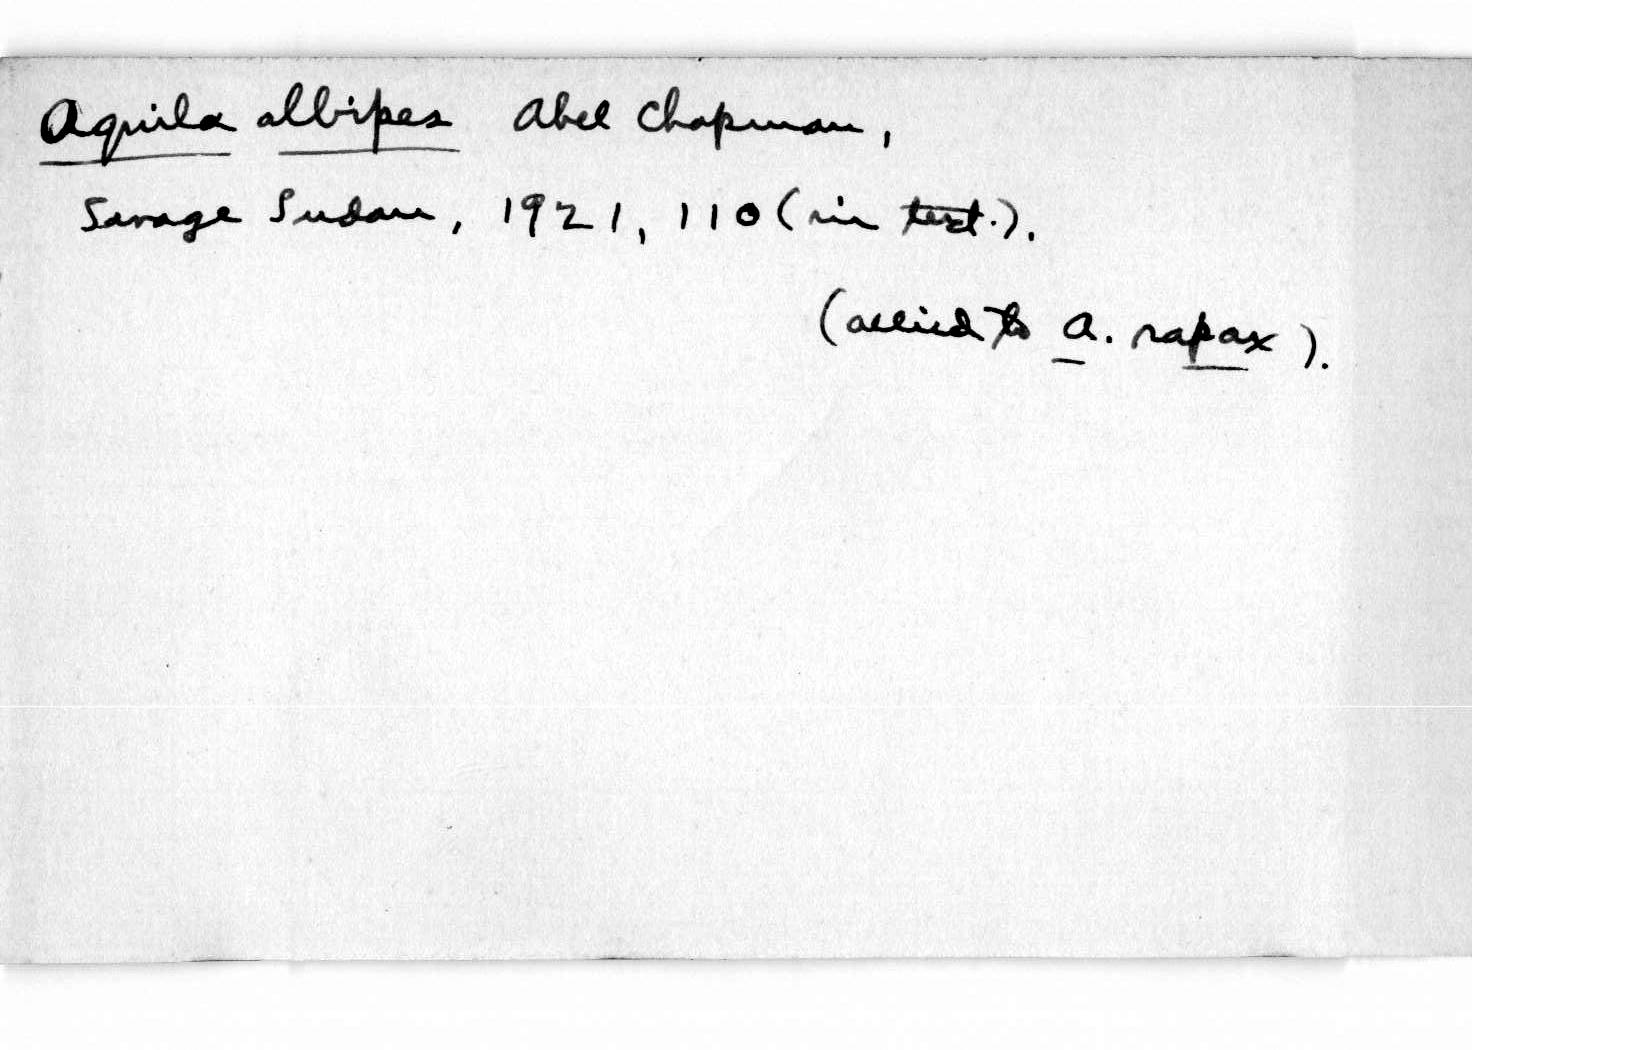 Aquila albipes Abel Chapman,
Savage Sudan, 1921, 110 (in text.).
(allied to A. rapax).